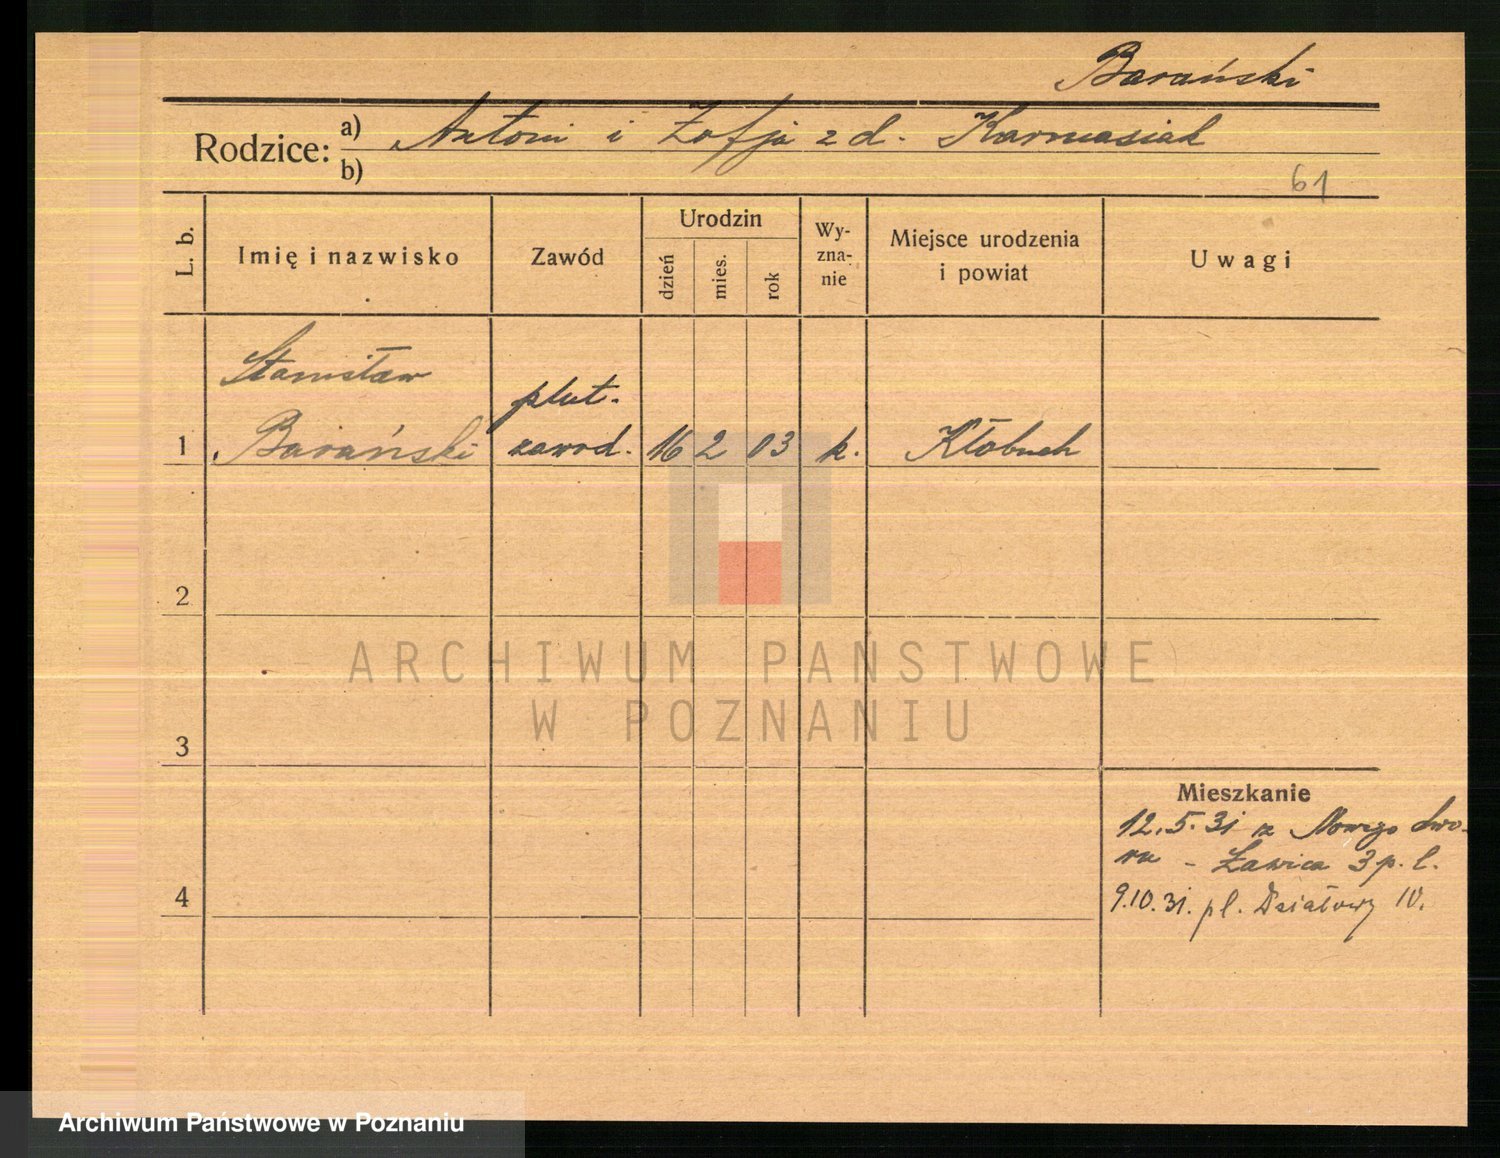 Barański
Rodzice: a) Antoni i Zofja z d. Karmasiak
b)
61
L. b.
Imię i nazwisko
Zawód
Urodzin
dzień
mies.
rok
Wy-
zna-
nie
Miejsce urodzenia
i powiat
Uwagi
Stanisław
plut.
1 Barański zawod. 16 2 03 k. Kłobuch
2
ARCHIWUM PAŃSTWOWE
W POZNANIU
3
Mieszkanie
12.5.31 z Nowego Dwo-
ru - Ławica 3 p. l.
4
9.10.31. pl. Działowy 10.
Archiwum Państwowe w Poznaniu